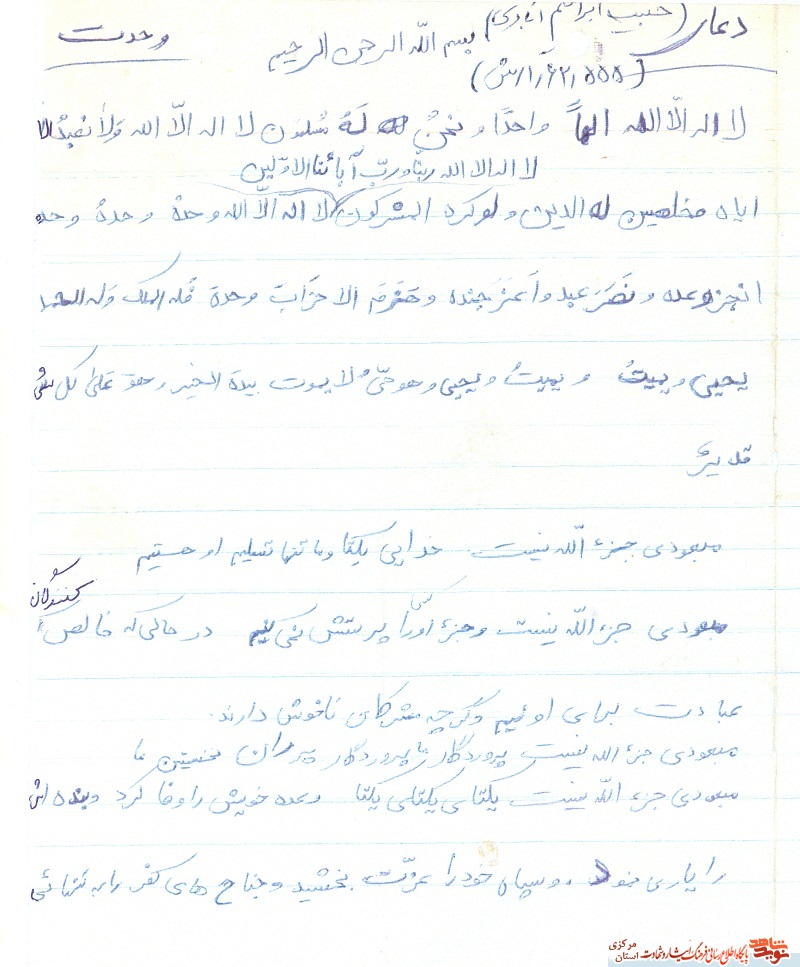 دعای (حبیب ابراهیم آبادی) وحدت
بسم الله الرحمن الرحیم
لا اله الّا الله الهاً واحدًا و نحنُ لَهُ مُسلمون لا اله الّا الله وَلا نعبدُ الّا
لا اله الا الله ربنا و رب آبائنا الاوّلین
ایاه مخلصین له الدین و لو کره المشرکون لا اله الّا الله وحدهُ وحدهُ وحده
انجز وعده و نَصَرَ عبده وَ اَعَزَّ جنده و هَزَمَ الاحزاب وحدهَ فله الملک وله الحمد
یحیی و یمیتُ و یمیتُ و یحیی و هو حیٌّ لا یموت بیدهِ الخیر و هوَ عَلیٰ کل شی
قدیرٌ
معبودی جزء الله نیست خدایی یکتا و ما تنها تسلیم او هستیم
معبودی جزء الله نیست و جزء او کسی را پرستش نمی کنیم در حالی که خالص کنندگان
عبادت برای اوئیم و گرچه مشرکان ناخوش دارند.
معبودی جزء الله نیست پروردگار ما پروردگار پدران نخستین ما
معبودی جزء الله نیست یکتای یکتای یکتا وعده خویش را وفا کرد و بنده اش
را یاری نمود و سپاه خود را عزّت بخشید و جناح های کفر را به تنهائی
نوید شاهد پایگاه اطلاع رسانی فرهنگ ایثار و شهادت استان مرکزی